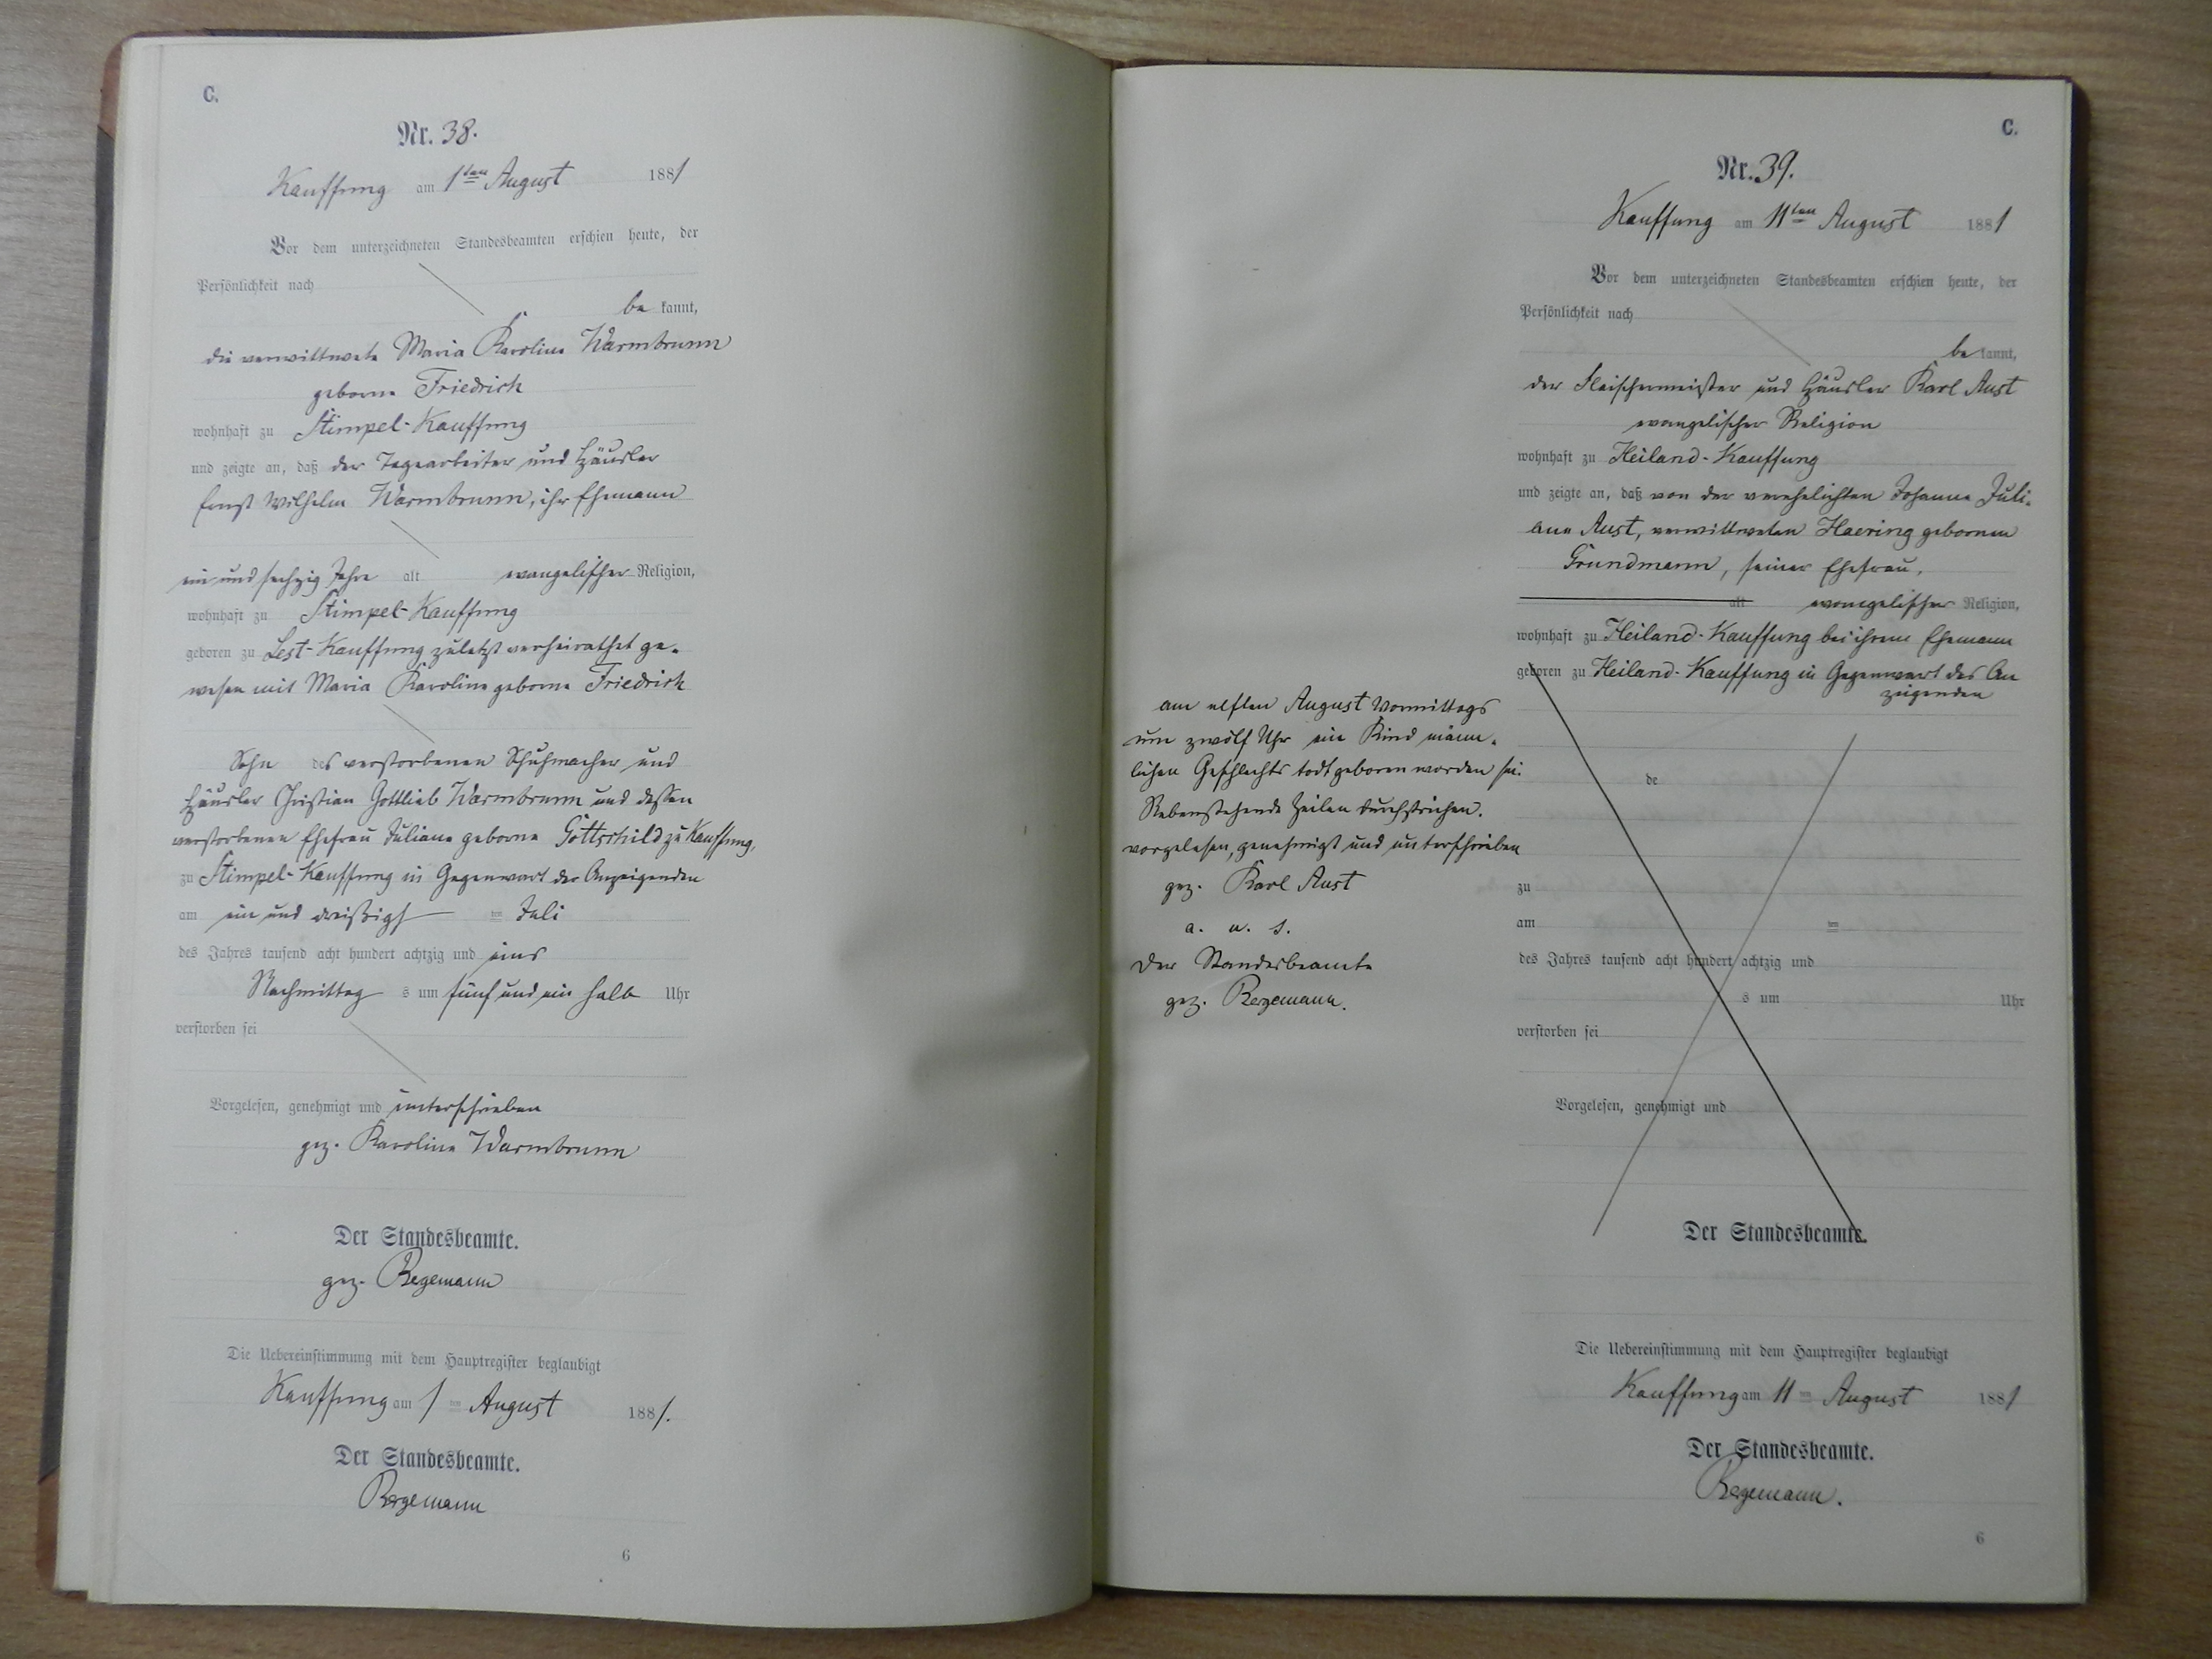 C.
Nr. 38.
Kauffung am 1ten August 1881
Vor dem unterzeichneten Standesbeamten erschien heute, der
Persönlichkeit nach
be kannt,
die verwittwete Maria Karoline Warmbrunn
geborne Friedrich
wohnhaft zu Stimpel-Kauffung
und zeigte an, daß der Tagearbeiter und Häusler
Ernst Wilhelm Warmbrunn, ihr Ehemann
ein und sechzig Jahre alt evangelischer Religion,
wohnhaft zu Stimpel-Kauffung
geboren zu Lest-Kauffung zuletzt verheirathet ge-
wesen mit Maria Karoline geborne Friedrich
Sohn des verstorbenen Schuhmacher und
Häusler Christian Gottlieb Warmbrunn und dessen
verstorbenen Ehefrau Juliane geborne Gottschild zu Kauffung,
zu Stimpel-Kauffung in Gegenwart der Anzeigenden
am ein und dreißigst ten Juli
des Jahres tausend acht hundert achtzig und eins
Nachmittag s um fünf und ein halb Uhr
verstorben sei
Vorgelesen, genehmigt und unterschrieben
gez. Karoline Warmbrunn
Der Standesbeamte.
gez. Bergemann
Die Uebereinstimmung mit dem Hauptregister beglaubigt
Kauffung am 1 ten August 1881.
Der Standesbeamte.
Bergemann
6
C.
Nr. 39.
Kauffung am 11ten August 1881
Vor dem unterzeichneten Standesbeamten erschien heute, der
Persönlichkeit nach
be kannt,
der Fleischermeister und Häusler Karl Aust
evangelischer Religion
wohnhaft zu Heiland-Kauffung
und zeigte an, daß von der verehelichten Johanne Juli-
ane Aust, verwittweten Haering gebornen
Grundmann, seiner Ehefrau,
alt evangelischer Religion,
wohnhaft zu Heiland-Kauffung bei ihrem Ehemann
geboren zu Heiland-Kauffung in Gegenwart des An
zeigenden
am elften August Vormittags
um zwölf Uhr ein Kind männ-
lichen Geschlechts todt geboren worden sei.
Nebenstehende Zeilen durchstrichen.
vorgelesen, genehmigt und unterschrieben
gez. Karl Aust
a. u. s.
Der Standesbeamte
gez. Bergemann.
de
zu
am ten
des Jahres tausend acht hundert achtzig und
s um Uhr
verstorben sei
Vorgelesen, genehmigt und
Der Standesbeamte.
Die Uebereinstimmung mit dem Hauptregister beglaubigt
Kauffung am 11 ten August 1881
Der Standesbeamte.
Bergemann.
6